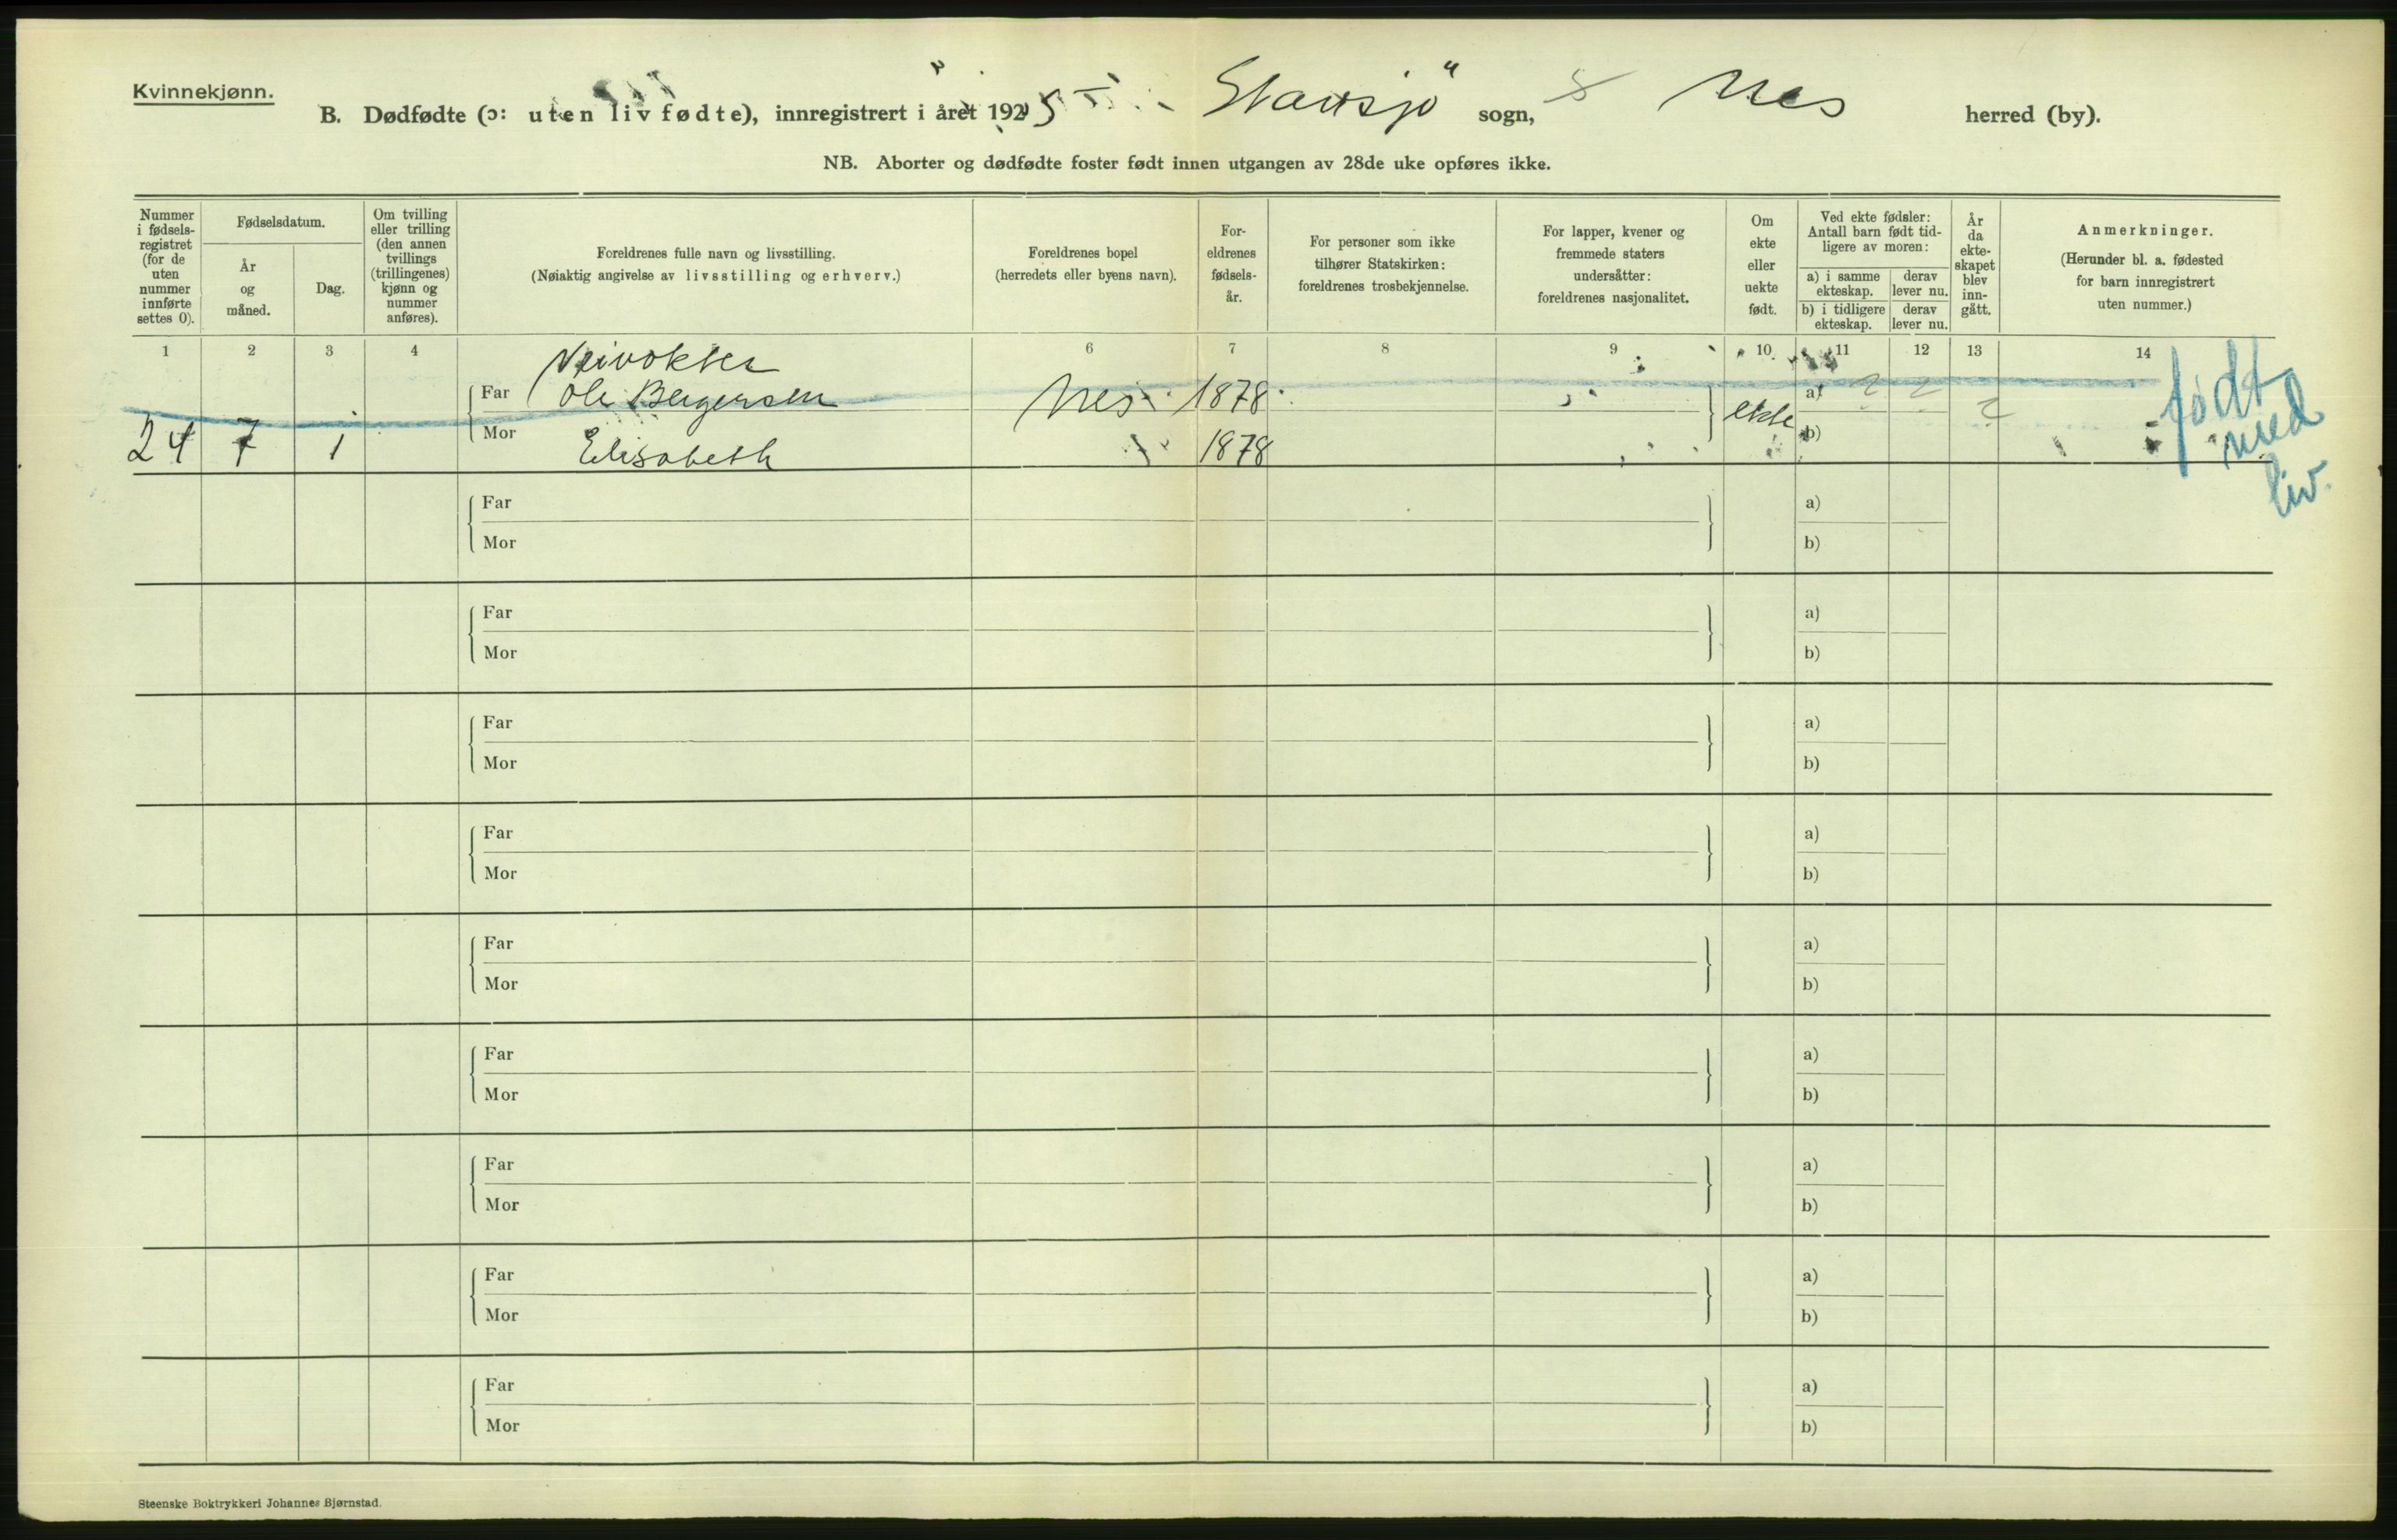 Kvinnekjønn.
B. Dødfødte (ɔ: uten liv fødte), innregistrert i året 1925 i Stavsjø sogn, Nes herred (by).
NB. Aborter og dødfødte foster født innen utgangen av 28de uke opføres ikke.
Nummer i fødsels-registret (for de uten nummer innførte settes 0).
Fødselsdatum.
År og måned.
Dag.
Om tvilling eller trilling (den annen tvillings (trillingenes) kjønn og nummer anføres).
Foreldrenes fulle navn og livsstilling.
(Nøiaktig angivelse av livsstilling og erhverv.)
Foreldrenes bopel
(herredets eller byens navn).
For-eldrenes fødsels-år.
For personer som ikke tilhører Statskirken: foreldrenes trosbekjennelse.
For lapper, kvener og fremmede staters undersåtter: foreldrenes nasjonalitet.
Om ekte eller uekte født.
Ved ekte fødsler: Antall barn født tid-ligere av moren:
a) i samme ekteskap.
derav lever nu.
b) i tidligere ekteskap.
derav lever nu.
År da ekte-skapet blev inn-gått.
Anmerkninger.
(Herunder bl. a. fødested for barn innregistrert uten nummer.)
1 2 3 4 6 7 8 9 10 11 12 13 14
Veivokter
Far Ole Bergersen Nes 1878 ekte a) ? ? ? født
24 7 1 Mor Elisabeth 1878 b) med
liv.
Far a)
Mor b)
Far a)
Mor b)
Far a)
Mor b)
Far a)
Mor b)
Far a)
Mor b)
Far a)
Mor b)
Far a)
Mor b)
Far a)
Mor b)
Far a)
Mor b)
Steenske Boktrykkeri Johannes Bjørnstad.